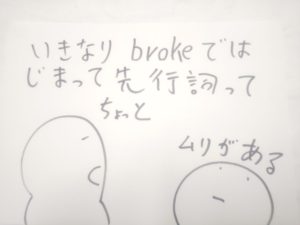 いきなり brokeでは
じまって先行詞って
ちょっと
ムリがある